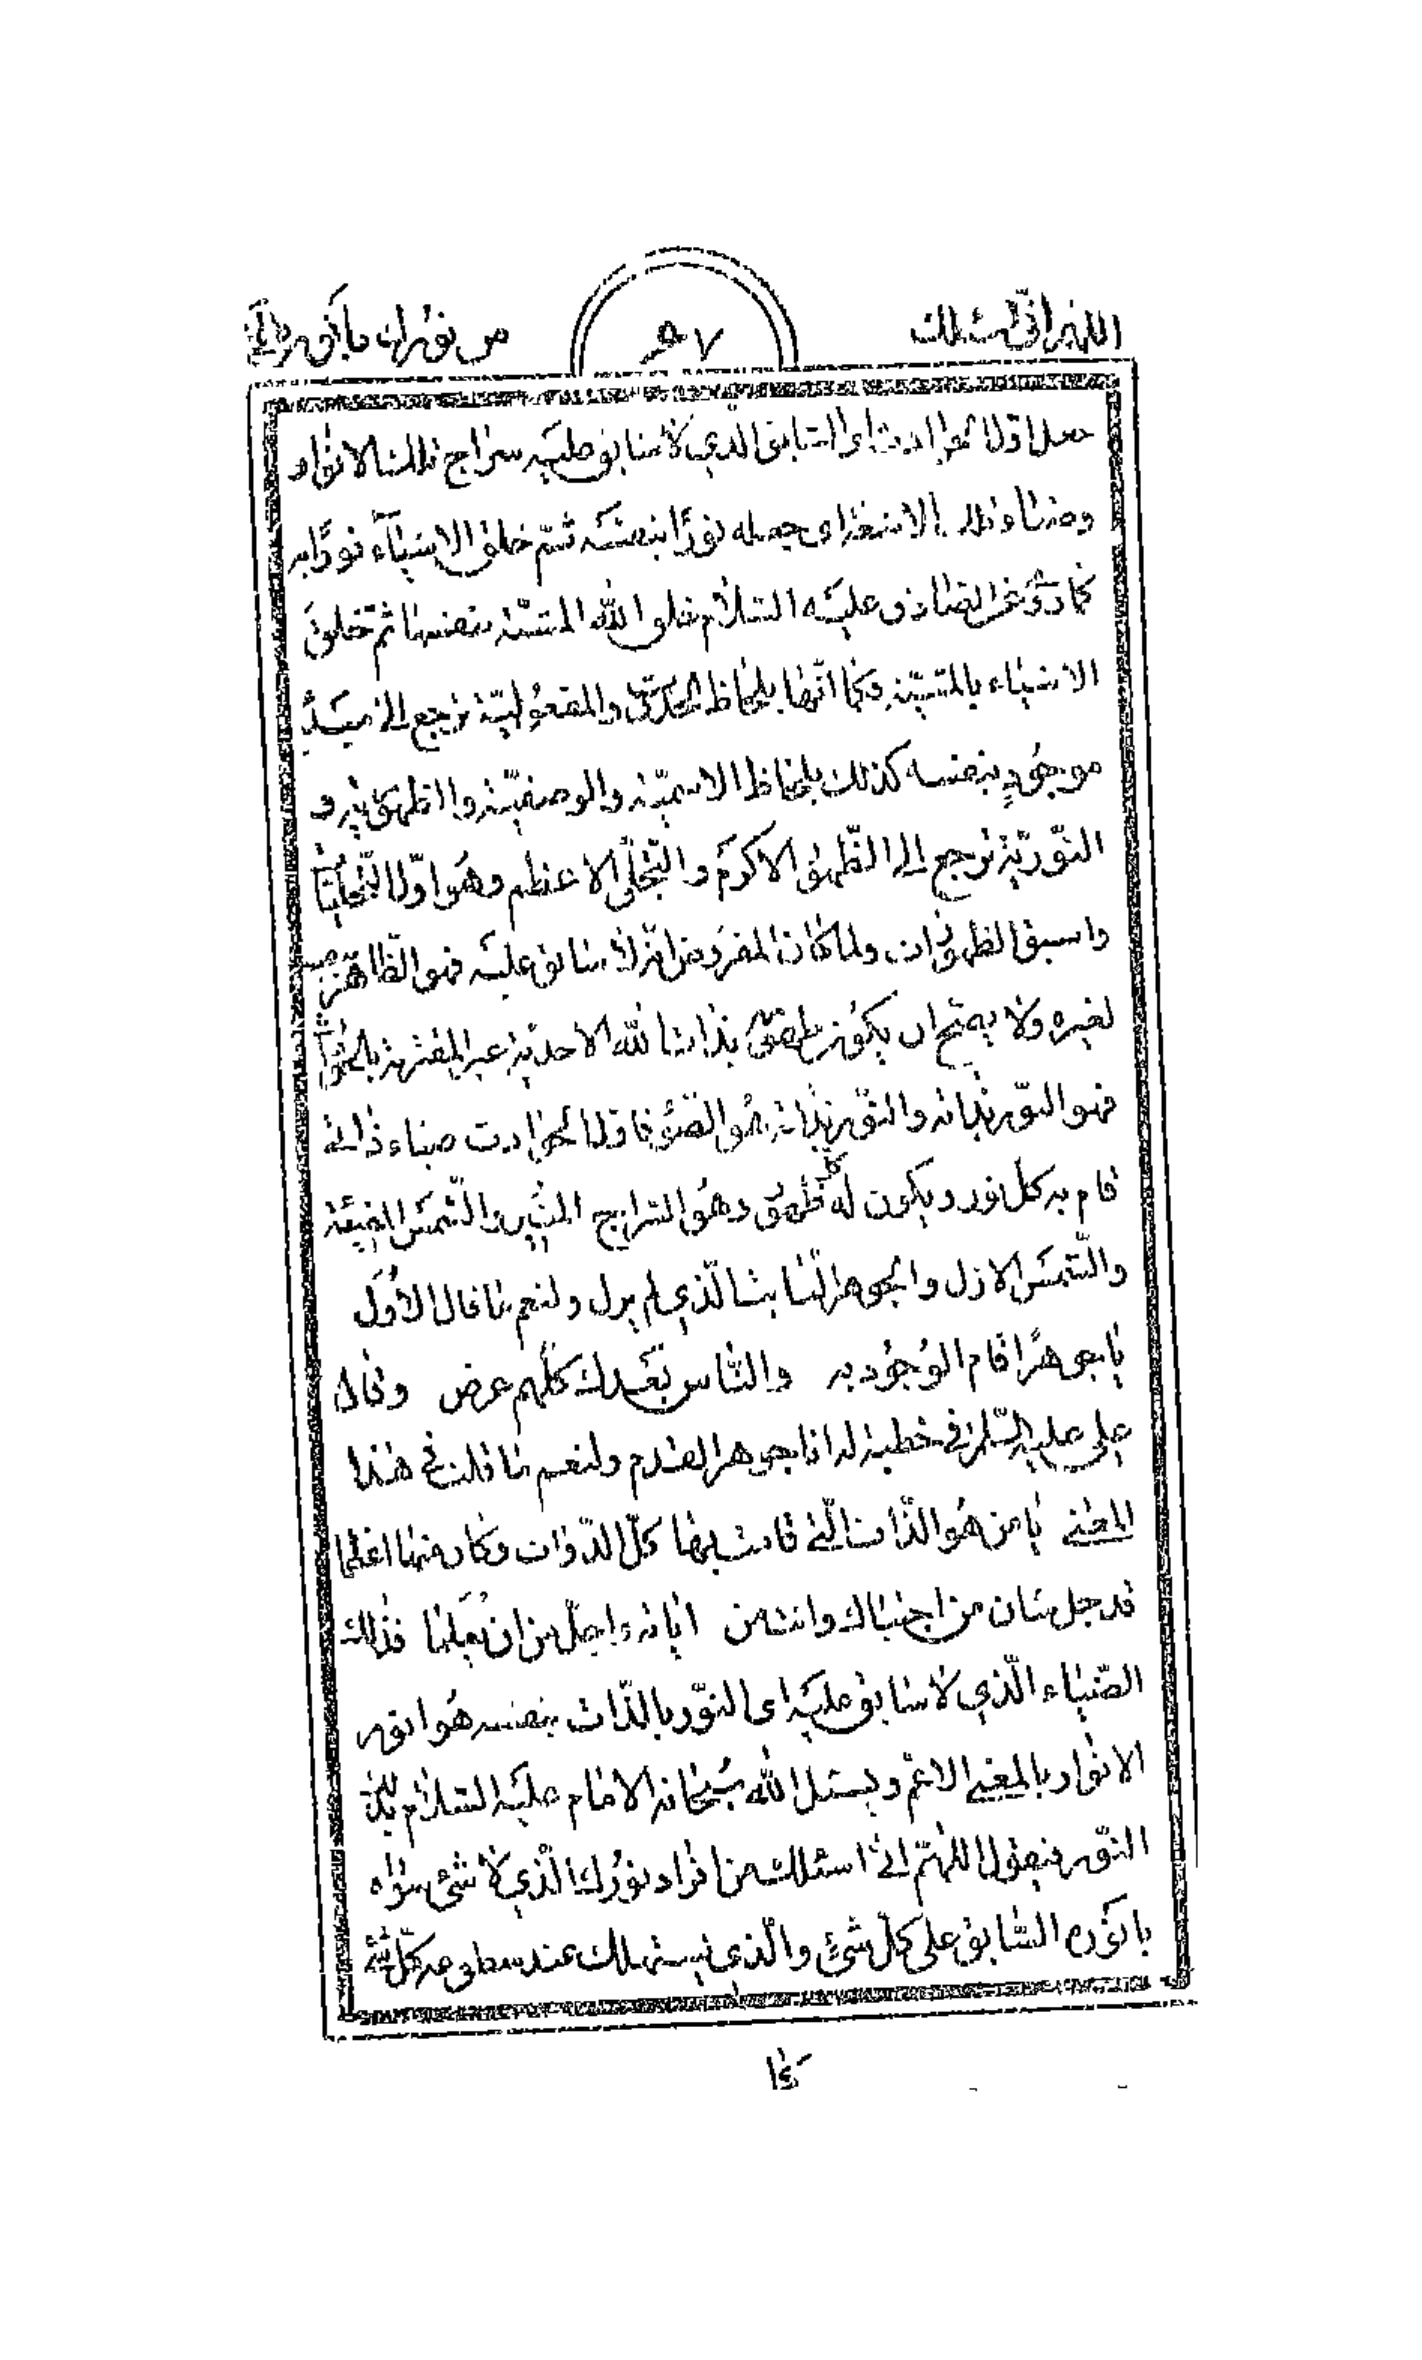 اللهم انی اسئلك
من نورك بانوره
جعل اول الحوادث ای السابق الذي لا سابق عليه سراج تلك الانوار
الاشعة ای جعله نورًا بنفسه ثمّ خلق الاشيآء نورًا به
كما روی عن الصادق عليه السلام خلق الله المشيّة بنفسها ثم خلق
الاشياء بالمشيّة وكما انّها بلحاظ والمفعوليّة ترجع الى مبدءٍ
موجودٍ بنفسه كذلك بلحاظ الاسميّة والوصفيّة والظهوريّة و
النّوريّة ترجع الى الظّهور الاكرم والتّجلّی الاعظم وهو اوّل التّجليات
واسبق الظهورات ولما كان المفروض انه لا سابق عليه فهو الظاهر
لغيره ولا يصح ان يكون بذات الله الاحديّة غير المقترنة بالحوادث
فهو النّور بذاته والنّور بذاته هو الضّوء فاول الحوادث ضياء ذاته
قام به كل نور ويكون له كل ظهور وهو السراج المنير والشّمس المضيئة
والشّمس الازل والجوهر الثابت الّذي لم يزل ولنعم ما قال الأوّل
يا جوهرًا قام الوُجُود به والنّاس بَعْدك كلّهم عرض وقال
علی عليه السّلم فی خطبة له انا جوهر القدم ولنعم ما قلت فی هذا
المعنی يا من هُو الذّات الّتی قامت بها كلّ الذّوات وكان منها اعلها
قد جل شان من اجتباك وانت من اياته واجلّ من ان فذلك
الضّياء الّذي لا سابق عليه ای النّور بالذّات بنفسه هُو انور
الانوار بالمعنی الاعم ويسئل الله سبحانه الامام عليه السلام بذلك
النّور فيقول اللهمّ انی اسئلك من نورك الّذي لا شئ سواه
بانوره السّابق علی كلّ شئ والّذي يستهلك عند سطوعه كلّ شئ
كما